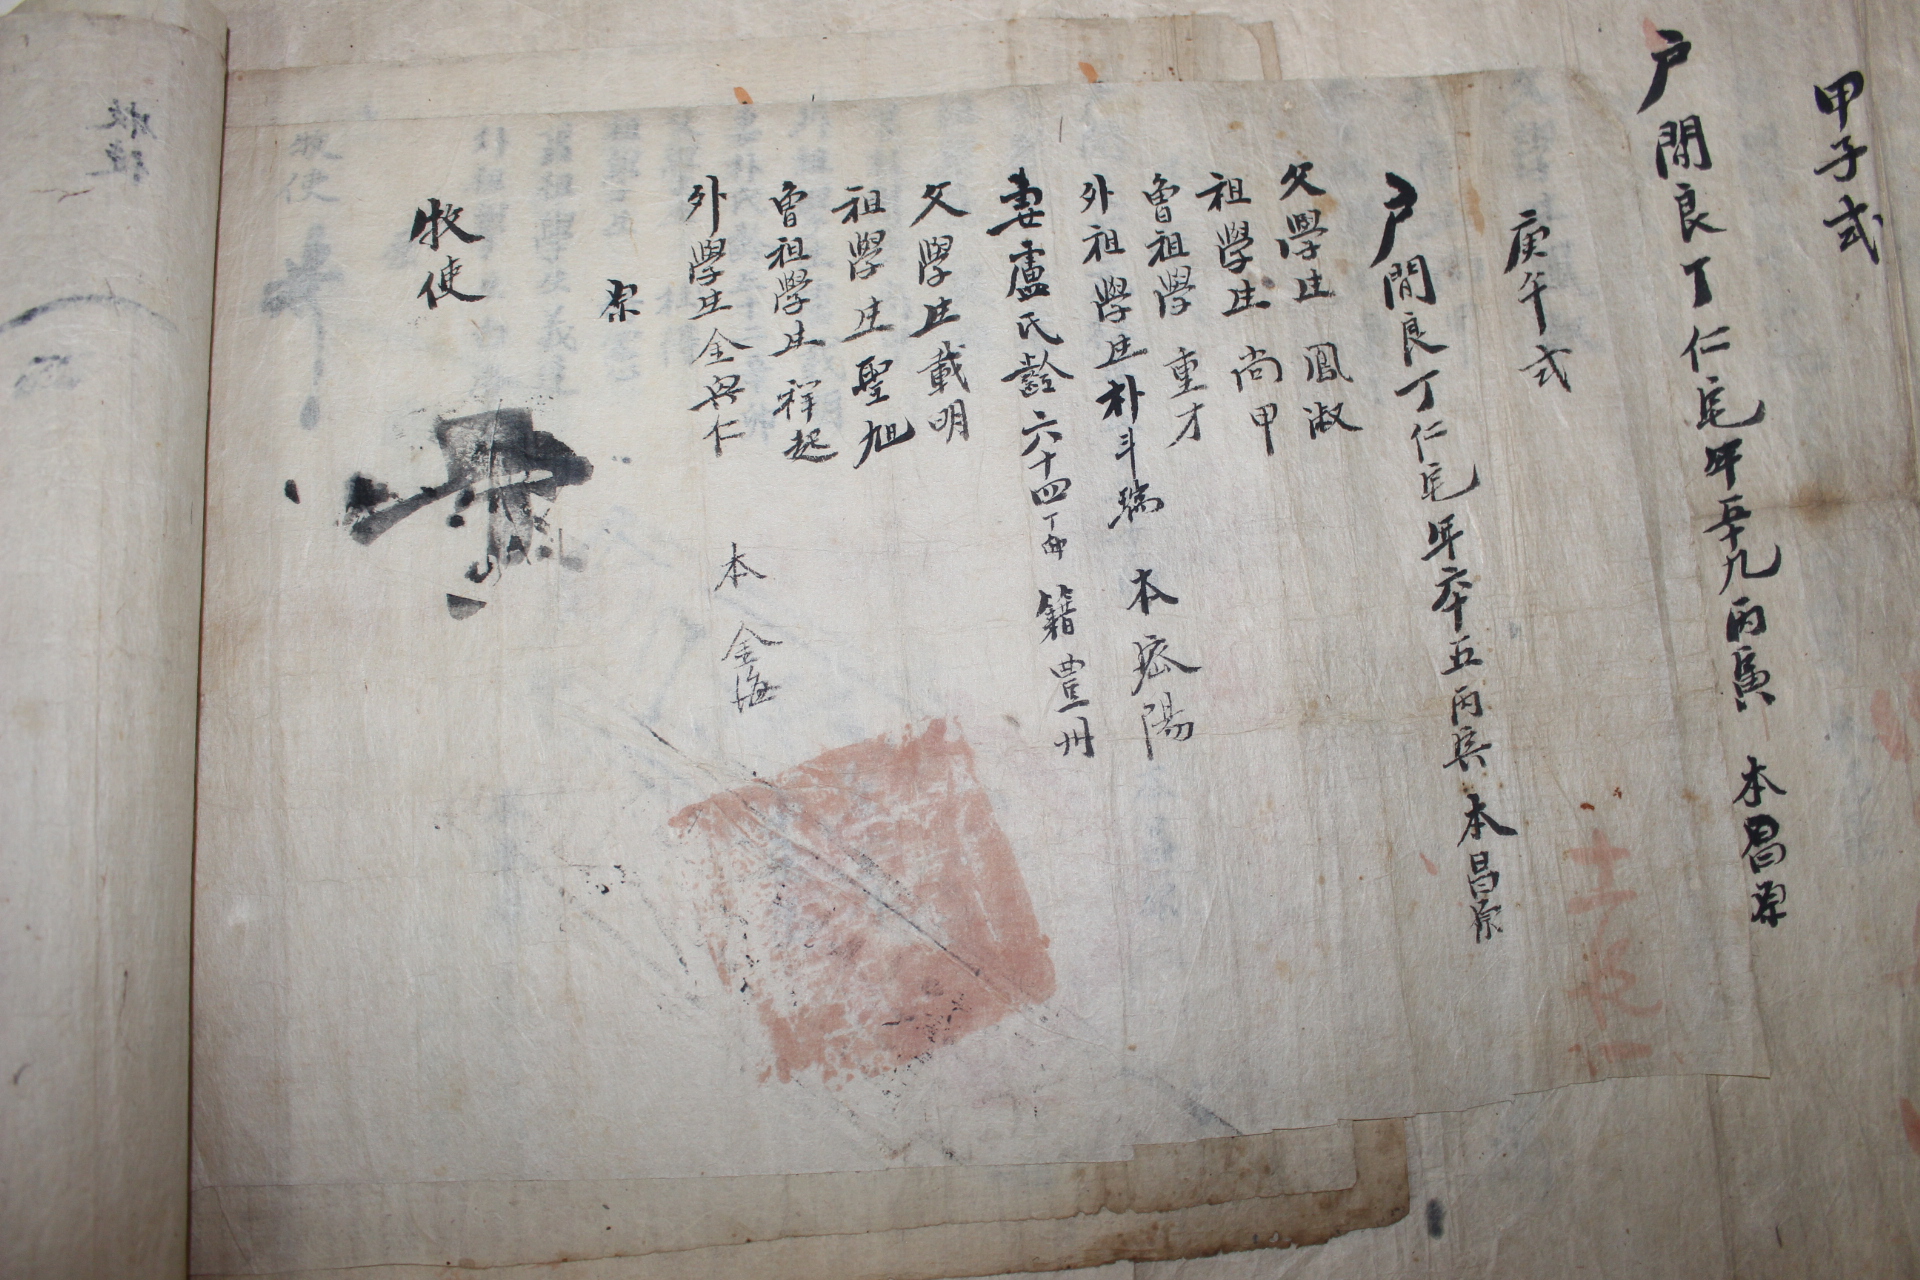 甲子式
戶閒良丁仁宅年五十九丙寅 本昌原
庚午式
戶閒良丁仁宅年六十五丙寅 本昌原
父學生 鳳淑
祖學生 尚甲
曾祖學 重才
外祖學生朴斗瑞 本密陽
妻盧氏齡六十四丁卯 籍豊州
父學生載明
祖學生聖旭
曾祖學生祥起
外學生金興仁 本金海
牧使
牧使